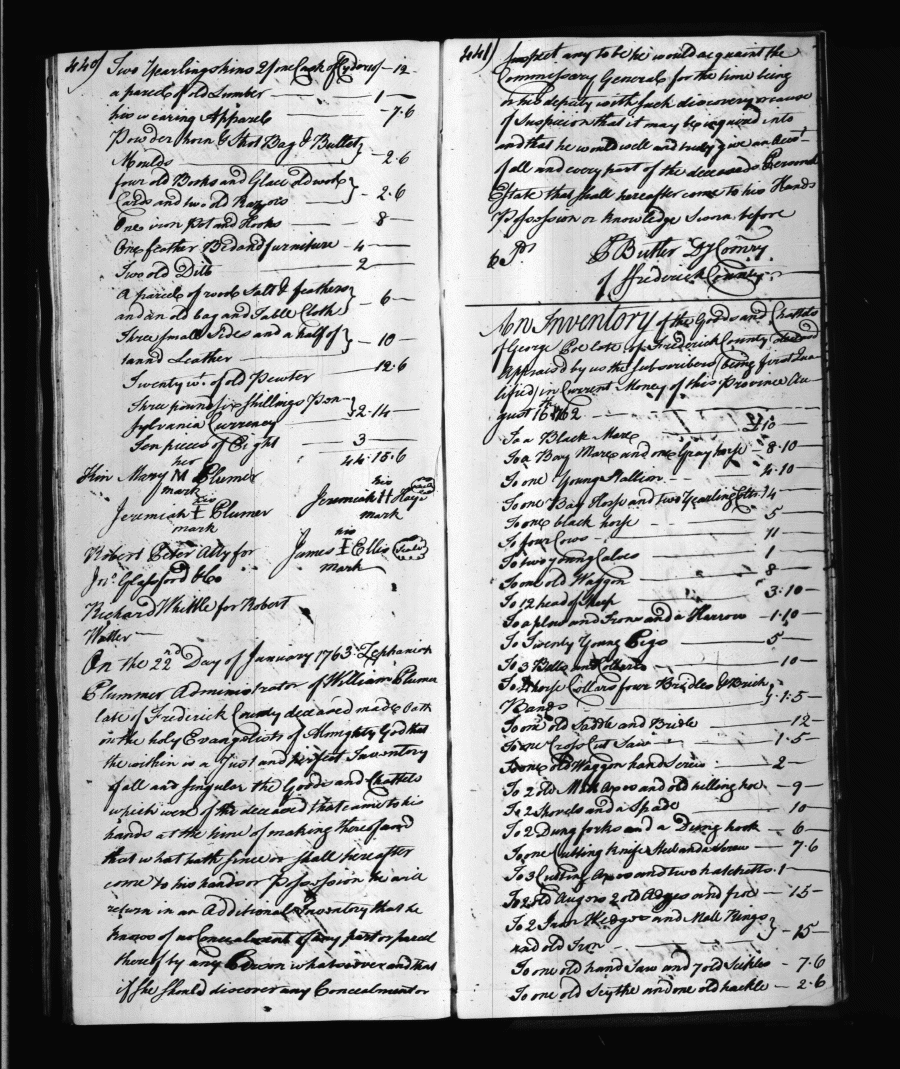 440
Two Yearling skins 2/ one Cask of Cyder 10/ - 12 -
a parcel of old Lumber - 1 -
his wearing Apparel - 7.6
Powder horn & Shot Bag & Bullet
Moulds } - 2.6
four old Books and Glace old wool
Cards and two old Razors } - 2.6
One iron Pot and Hooks - 8 -
One feather Bed and furniture - 4 -
Two old Ditto 2 -
a parcel of wool Salt & feathers
and an old bag and Table Cloth } - 6 -
Three small Sides and a half of
tannd Leather } - 10
Twenty wt. of old Pewter - 12.6
Three pounds six shillings Pen-
sylvania Currency } 2.14 -
Ten pieces of Eight 3 -
44.15.6
her
Kin Mary M Plumer
mark
his
Jeremiah Plumer
mark
his
Jeremiah H Hays Seal
mark
his
James I Ellis Seal
mark
Robert Peter Atty for
Jno. Glassford & Co
Richard Whittle for Robert
Waller
On the 22nd Day of January 1763 Zephaniah
Plummer Administrator of William Pluma
late of Frederick County deceased made Oath
on the holy Evangelists of Almighty God that
the within is a Just and perfect Inventory
of all and singular the Goods and Chattels
which were of the deceased that came to his
hands at the time of making thereof and
that what hath since or shall hereafter
come to his hands or Possession he will
return in an Additional Inventory that he
knows of no Concealment of any part or parcel
thereof by any Person whatsoever and that
if She should discover any Concealment or
441
suspect any to be he would acquaint the
Commissary General for the time being
or his deputy with such discovery or cause
of Suspicion that it may be inquired into
and that he would well and truly give an Acct.
of all and every part of the deceaseds Personal
Estate that shall hereafter come to his Hands
Possession or knowledge Sworn before
Butler Dy Comry
of Frederick County
An Inventory of the Goods and Chattels
of George Poe late of Frederick County deceased
Appraised by us the Subscribers (being first Qua
lified) in Current Money of this Province Au-
gust 16th 1762
To a Black Mare £ 10 -
To a Bay Mare and one Gray horse - 8.10
To one Young Stallion - 4.10
To one Bay Horse and two Yearling Colts } 4 -
To one black horse - 5 -
To four Cows - 11 -
To two young Calves - 1 -
To one old Waggon - 8 -
To 12 head of Sheep - 3.10
To a plow and Irons and a Harrow - 1.10
To Twenty Young Pigs - 5 -
To 3 Bells and Collars - 10 -
To 4 horse Collars four Bridles & Brich
Bands } 1.5 -
To one old Saddle and Bridle - 12 -
To one Cross Cut Saw - 1.5 -
To one old Waggon hand Screw - 2 -
To 2 old Axes and old hilling hoe - 9 -
To 2 Shovels and a Spade - 10
To 2 Dung forks and a Dung hook - 6 -
To one Cutting knife Sted and a Screw - 7.6
To 3 Cutting Axes and two hatchetts - 1 -
To 2 old Augers 2 old Adzes and froe - 15 -
To 2 Iron Wedges and Mall Rings
and old Iron } - 15
To one old hand Saw and 7 old Sickles - 7.6
To one old Scythe and one old hackle - 2.6